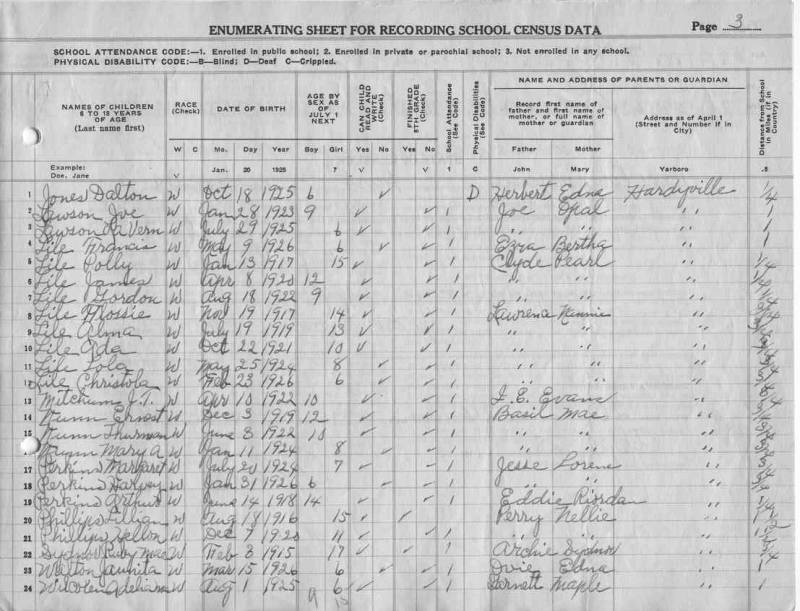 ENUMERATING SHEET FOR RECORDING SCHOOL CENSUS DATA Page 3
SCHOOL ATTENDANCE CODE:—1. Enrolled in public school; 2. Enrolled in private or parochial school; 3. Not enrolled in any school.
PHYSICAL DISABILITY CODE:—B—Blind; D—Deaf C—Crippled.
NAMES OF CHILDREN 6 TO 18 YEARS OF AGE (Last name first)
RACE (Check)
W C
DATE OF BIRTH
Mo. Day Year
AGE BY SEX AS OF JULY 1 NEXT
Boy Girl
CAN CHILD READ AND WRITE (Check)
Yes No
FINISHED 8TH GRADE (Check)
Yes No
School Attendance (See Code)
Physical Disabilities (See Code)
NAME AND ADDRESS OF PARENTS OR GUARDIAN
Record first name of father and first name of mother, or full name of mother or guardian
Father Mother
Address as of April 1 (Street and Number if in City)
Distance from School in Miles (if in Country)
Example: Doe, Jane V Jan. 20 1925 7 V V 1 C John Mary Yarboro .5
1 Jones Dalton W Oct 18 1925 6 ✓ D Herbert Edna Hardyville 1/4
2 Lawson Joe W Jan 28 1923 9 ✓ ✓ 1 Joe Opal " 1
3 Lawson LaVern W July 29 1925 6 ✓ ✓ 1 " " " 1
4 Lile Francis W May 9 1926 6 ✓ ✓ 1 Ezra Bertha " 1
5 Lile Polly W Jan 13 1917 15 ✓ ✓ 1 Clyde Pearl " 1/4
6 Lile James W Apr 8 1920 12 ✓ ✓ 1 " " " 1/4
7 Lile Gordon W Aug 18 1922 9 ✓ ✓ 1 " " " 1/4
8 Lile Flossie W Nov 19 1917 14 ✓ ✓ 1 Lawrena Nannie "
9 Lile Alma W July 19 1919 13 ✓ ✓ 1 " " "
10 Lile Ida W Oct 22 1921 10 ✓ ✓ 1 " " "
11 Lile Lola W May 25 1924 8 ✓ ✓ 1 " " "
12 Lile Christola W Feb 23 1926 6 ✓ ✓ 1 " " "
13 Mitchum J.T. W Apr 10 1922 10 ✓ ✓ 1 I.E. Evans "
14 Nunn Ernest W Dec 3 1919 12 ✓ ✓ 1 Basil Mae "
15 Nunn Thurman W June 3 1922 10 ✓ ✓ 1 " " "
16 Nunn Mary A W Jan 11 1924 8 ✓ ✓ 1 " " "
17 Perkins Margaret W July 20 1924 7 ✓ ✓ 1 Jesse Lorene "
18 Perkins Harvey W Jan 31 1926 6 ✓ ✓ 1 " " "
19 Perkins Arthur W June 14 1918 14 ✓ ✓ 1 Eddie Riordan "
20 Phillips Lillian W Aug 18 1916 15 ✓ ✓ Perry Nellie "
21 Phillips W Dec 7 1920 11 ✓ ✓ 1 " " "
22 Sydnor Ruby Mae W Feb 3 1915 17 ✓ ✓ 1 Archie Sydnor "
23 Walton Jaunita W Mar 15 1926 6 ✓ ✓ 1 Ovie Edna " 1
24 W Aug 1 1925 6 ✓ ✓ 1 Garnett Maple " 1
9 15